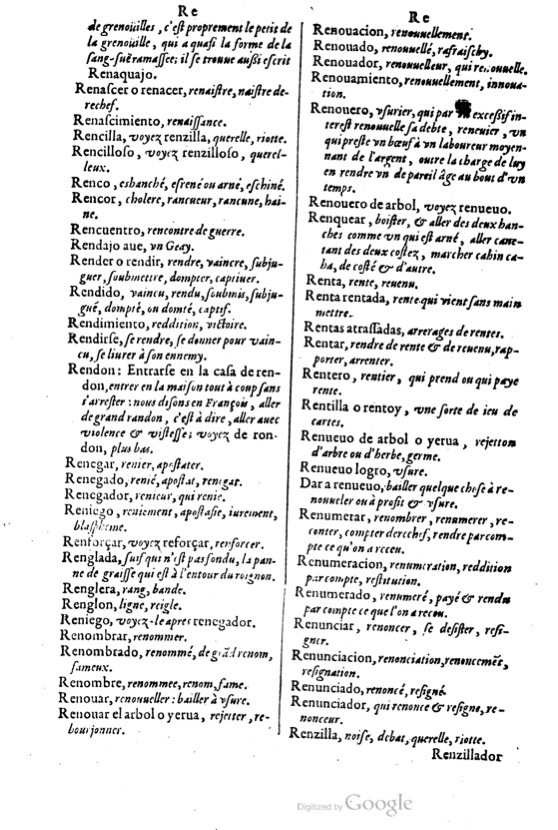 Re
de grenoüilles, c'est proprement le petit de
la grenoüille, qui a quasi la forme de la
sang-suë ramassee; il se trouue außi escrit
Renaquajo.
Renascer o renacer, renaistre, naistre de-
rechef.
Renascimiento, renaissance.
Rencilla, voyez renzilla, querelle, riotte.
Rencilloso, voyez renzilloso, querel-
leux.
Renco, eshanché, esrené ou arné, eschiné.
Rencor, cholere, rancueur, rancune, hai-
ne.
Rencuentro, rencontre de guerre.
Rendajo aue, vn Geay.
Render o rendir, rendre, vaincre, subju-
guer, soubmettre, dompter, captiuer.
Rendido, vaincu, rendu, soubmis, subju-
gué, dompté, ou domté, captif.
Rendimiento, reddition, victoire.
Rendirse, se rendre, se donner pour vain-
cu, se liurer à son ennemy.
Rendon: Entrarse en la casa de ren-
don, entrer en la maison tout à coup sans
s'arrester: nous disons en François, aller
de grand randon, c'est à dire, aller auec
violence & vistesse; voyez de ron-
don, plus bas.
Renegar, renier, apostater.
Renegado, renié, apostat, renegat.
Renegador, renieur, qui renie.
Reniego, reniement, apostasie, iurement,
blaspheme.
Renforçar, voyez reforçar, renforcer.
Renglada, suif qui n'est pas fondu, la pan-
ne de graisse qui est à l'entour du roignon.
Renglera, rang, bande.
Renglon, ligne, reigle.
Reniego, voyez-le apres renegador.
Renombrar, renommer.
Renombrado, renommé, de grãd renom,
fameux.
Renombre, renommee, renom, fame.
Renouar, renouueller: bailler à vsure.
Renouar el arbol o yerua, rejetter, re-
bourjonner.
Re
Renouacion, renouuellement.
Renouado, renouuellé, rafraischy.
Renouador, renouuelleur, qui renouuelle.
Renouamiento, renouuellement, innoua-
tion.
Renouero, vsurier, qui par vn exceßif in-
terest renouuelle sa debte, reneuier, vn
qui preste vn bœuf à vn laboureur moyen-
nant de l'argent, outre la charge de luy
en rendre vn de pareil âge au bout d'vn
temps.
Renouero de arbol, voyez renueuo.
Renquear, boister, & aller des deux han-
ches comme vn qui est arné, aller cane-
tant des deux costez, marcher cahin ca-
ha, de costé & d'autre.
Renta, rente, reuenu.
Renta rentada, rente qui vient sans main
mettre.
Rentas atrassadas, arrerages de rentes.
Rentar, rendre de rente & de reuenu, rap-
porter, arrenter.
Rentero, rentier, qui prend ou qui paye
rente.
Rentilla o rentoy, vne sorte de ieu de
cartes.
Renueuo de arbol o yerua, rejetton
d'arbre ou d'herbe, germe.
Renueuo logro, vsure.
Dar a renueuo, bailler quelque chose à re-
nouueler ou à profit & vsure.
Renumerar, renombrer, renumerer, re-
conter, compter derechef, rendre par com-
pte ce qu'on a receu.
Renumeracion, renumeration, reddition
par compte, restitution.
Renumerado, renumeré, payé & rendu
par compte ce que l'on a receu.
Renunciar, renoncer, se desister, resi-
gner.
Renunciacion, renonciation, renoncemẽt,
resignation.
Renunciado, renoncé, resigné.
Renunciador, qui renonce & resigne, re-
nonceur.
Renzilla, noise, debat, querelle, riotte.
Renzillador
Digitized by Google